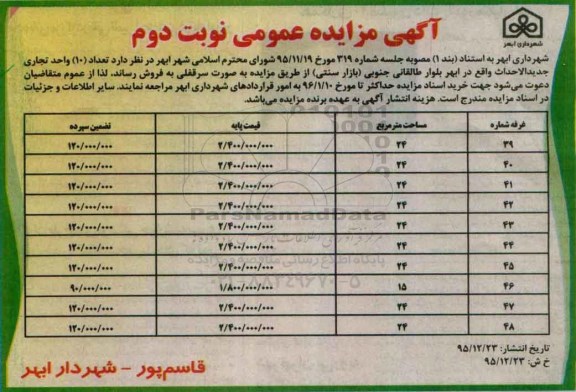 آگهی مزایده عمومی نوبت دوم
شهرداری ابهر
شهرداری ابهر به استناد (بند ۱) مصوبه جلسه شماره ۳۱۹ مورخ ۹۵/۱۱/۱۹ شورای محترم اسلامی شهر ابهر در نظر دارد تعداد (۱۰) واحد تجاری
جدیدالاحداث واقع در ابهر بلوار طالقانی جنوبی (بازار سنتی) از طریق مزایده به صورت سرقفلی به فروش رساند، لذا از عموم متقاضیان
دعوت می‌شود جهت خرید اسناد مزایده حداکثر تا مورخ ۹۶/۱/۱۰ به امور قراردادهای شهرداری ابهر مراجعه نمایند. سایر اطلاعات و جزئیات
در اسناد مزایده مندرج است. هزینه انتشار آگهی به عهده برنده مزایده می‌باشد.
غرفه شماره مساحت مترمربع قیمت پایه تضمین سپرده
۳۹ ۲۴ ۲/۴۰۰/۰۰۰/۰۰۰ ۱۲۰/۰۰۰/۰۰۰
۴۰ ۲۴ ۲/۴۰۰/۰۰۰/۰۰۰ ۱۲۰/۰۰۰/۰۰۰
۴۱ ۲۴ ۲/۴۰۰/۰۰۰/۰۰۰ ۱۲۰/۰۰۰/۰۰۰
۴۲ ۲۴ ۲/۴۰۰/۰۰۰/۰۰۰ ۱۲۰/۰۰۰/۰۰۰
۴۳ ۲۴ ۲/۴۰۰/۰۰۰/۰۰۰ ۱۲۰/۰۰۰/۰۰۰
۴۴ ۲۴ ۲/۴۰۰/۰۰۰/۰۰۰ ۱۲۰/۰۰۰/۰۰۰
۴۵ ۲۴ ۲/۴۰۰/۰۰۰/۰۰۰ ۱۲۰/۰۰۰/۰۰۰
۴۶ ۱۵ ۱/۸۰۰/۰۰۰/۰۰۰ ۹۰/۰۰۰/۰۰۰
۴۷ ۲۴ ۲/۴۰۰/۰۰۰/۰۰۰ ۱۲۰/۰۰۰/۰۰۰
۴۸ ۲۴ ۲/۴۰۰/۰۰۰/۰۰۰ ۱۲۰/۰۰۰/۰۰۰
ParsNamadData
پایگاه اطلاع رسانی مناقصه و مزایده
تاریخ انتشار: ۹۵/۱۲/۲۳
خ ش: ۹۵/۱۲/۲۳
قاسم‌پور - شهردار ابهر